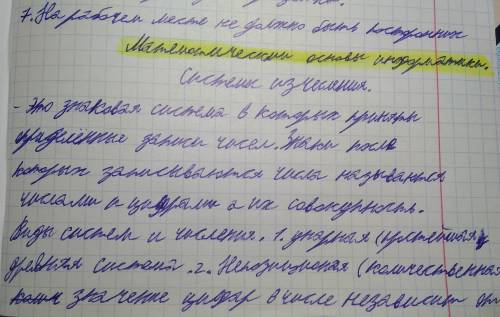 7. На рабочем месте не должно быть посторонних
Математический основы информатики.
Системы изчеления.
- Это знаковая система в которых приняты
определённые записи чисел. Знаки после
которых записываются числа называются
числами и цифрами а их совокупность.
Виды систем и числения. 1. унарная (простейшая,
древняя система. 2. Непозиционая (количественная
значение цифар в числе независит от